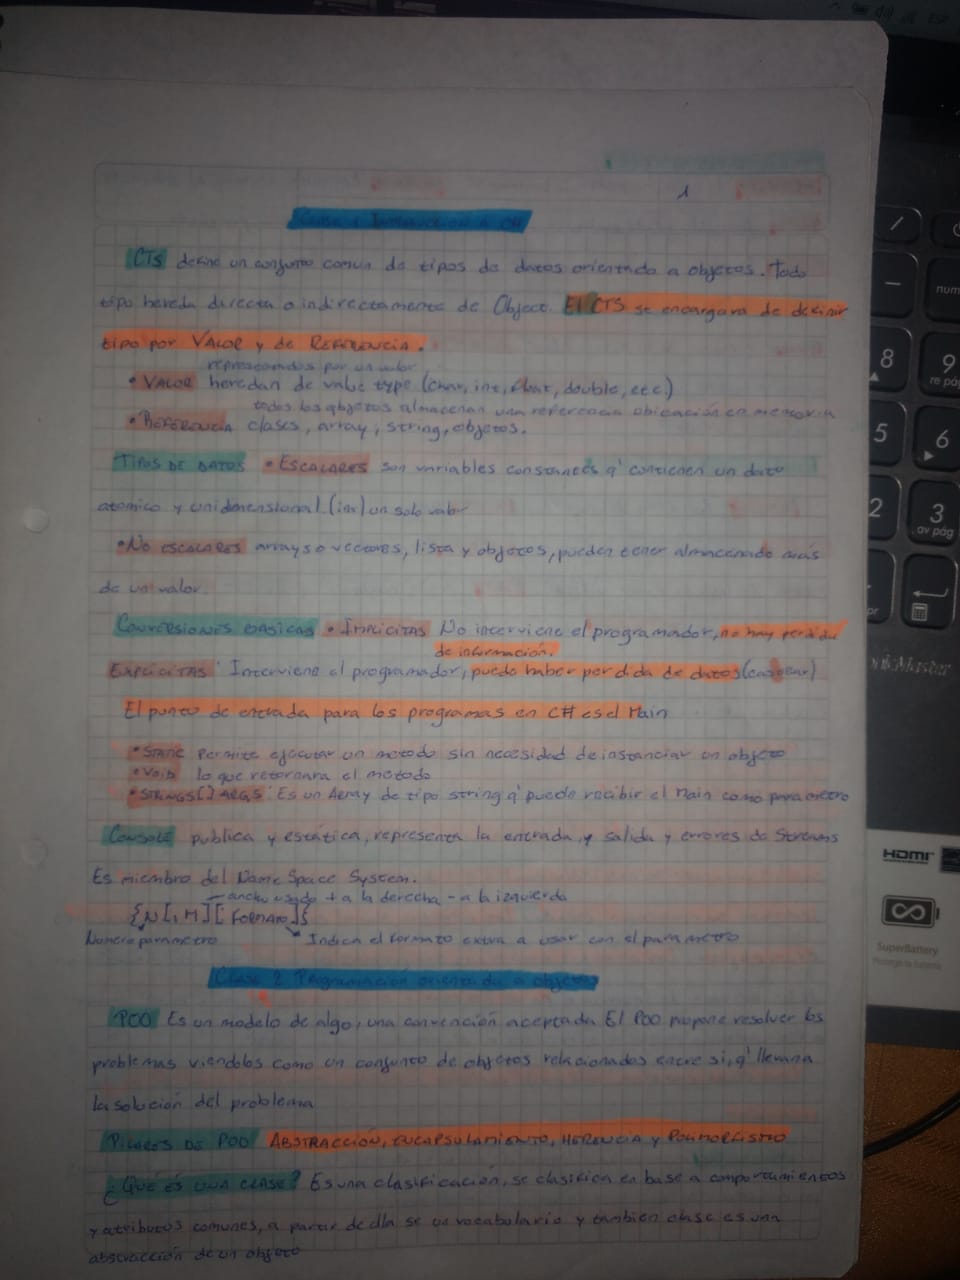 1
Clase 1 Introducción a C#
CTS define un conjunto comun de tipos de datos orientado a objetos. Todo
tipo hereda directa o indirectamente de Object. El CTS se encargara de definir
tipo por VALOR y de REFERENCIA.
representados por un valor
• VALOR heredan de value type (char, int, float, double, etc)
todos los objetos almacenan una referencia ubicación en memoria
• REFERENCIA clases, array, string, objetos.
TIPOS DE DATOS • ESCALARES son variables constantes q' contienen un dato
atomico y unidimensional (int) un solo valor
• NO ESCALARES arrays o vectores, lista y objetos, pueden tener almacenado más
de un valor.
CONVERSIONES BASICAS • IMPLICITAS No interviene el programador, no hay perdida
de información.
EXPLICITAS: Interviene el programador, puede haber perdida de datos (castear)
El punto de entrada para los programas en C# es el Main
• STATIC Permite ejecutar un metodo sin necesidad de instanciar un objeto
• VOID lo que retornara el metodo
• STRINGS[] ARGS: Es un Array de tipo string q' puede recibir el Main como parametro
CONSOLE publica y estática, representa la entrada, y salida y errores de Streams
Es miembro del Name Space System.
ancho usado + a la derecha - a la izquierda
{N[,M][FORMATO]}
Numero parametro
Indica el formato extra a usar con el parametro
Clase 2 Programación orientada a objetos
POO Es un modelo de algo, una convención aceptada El POO propone resolver los
problemas viendolos como un conjunto de objetos relacionados entre si, q' llevan a
la solución del problema
PILARES DE POO ABSTRACCIÓN, ENCAPSULAMIENTO, HERENCIA y POLIMORFISMO
¿QUÉ ES UNA CLASE? Es una clasificación, se clasifica en base a comportamientos
y atributos comunes, a partir de ella se un vocabulario y tambien clase es una
abstracción de un objeto
/
8
9
re pág
num
5
6
2
3
av pág
HDMI
SuperBattery